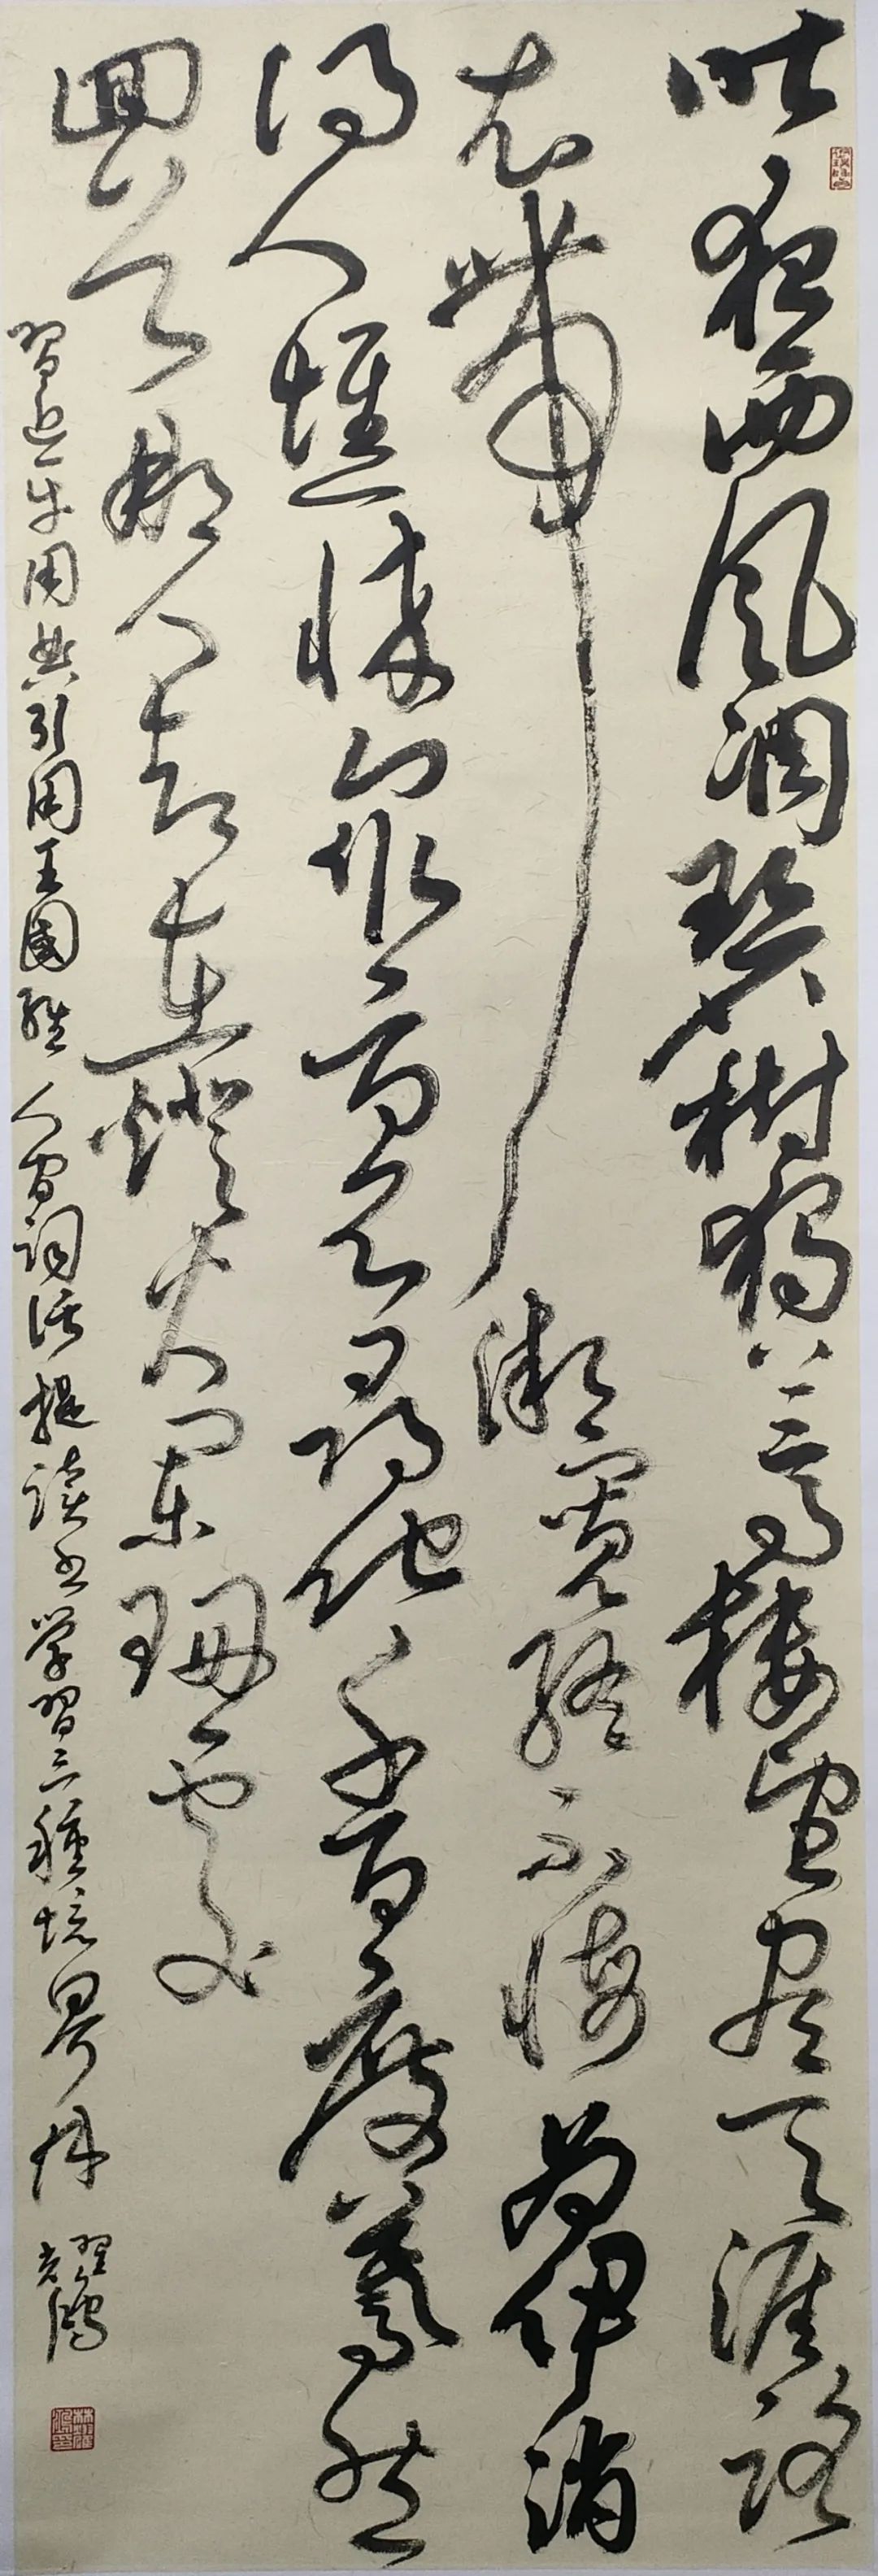 昨夜西風凋碧樹獨上高樓望盡天涯路
衣帶漸寬終不悔為伊消
得人憔悴眾裏尋他千百度驀然
回首那人却在燈火闌珊處
習近平用典引用王國維人間詞話提讀書學習三種境界 林耀鴻